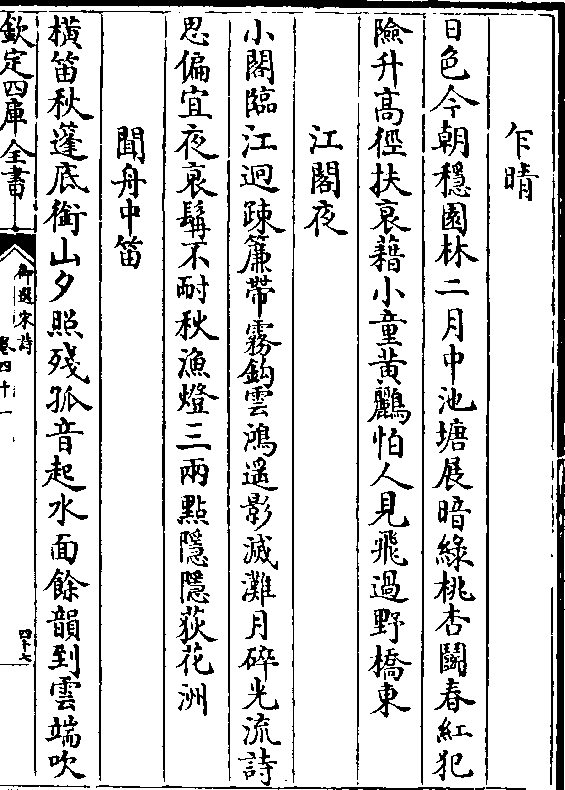 乍晴
日色今朝穩園林二月中池塘展暗綠桃杏鬭春紅犯
險升高徑扶衰藉小童黄鸝怕人見飛過野橋東
江閣夜
小閣臨江迥疎簾帶霧鈎雲鴻遥影滅灘月碎光流詩
思偏宜夜衰鬢不耐秋漁燈三兩點隱隱荻花洲
聞舟中笛
横笛秋蓬底銜山夕照殘孤音起水面餘韻到雲端吹
欽定四庫全書
御選宋詩
卷四十一
四十七